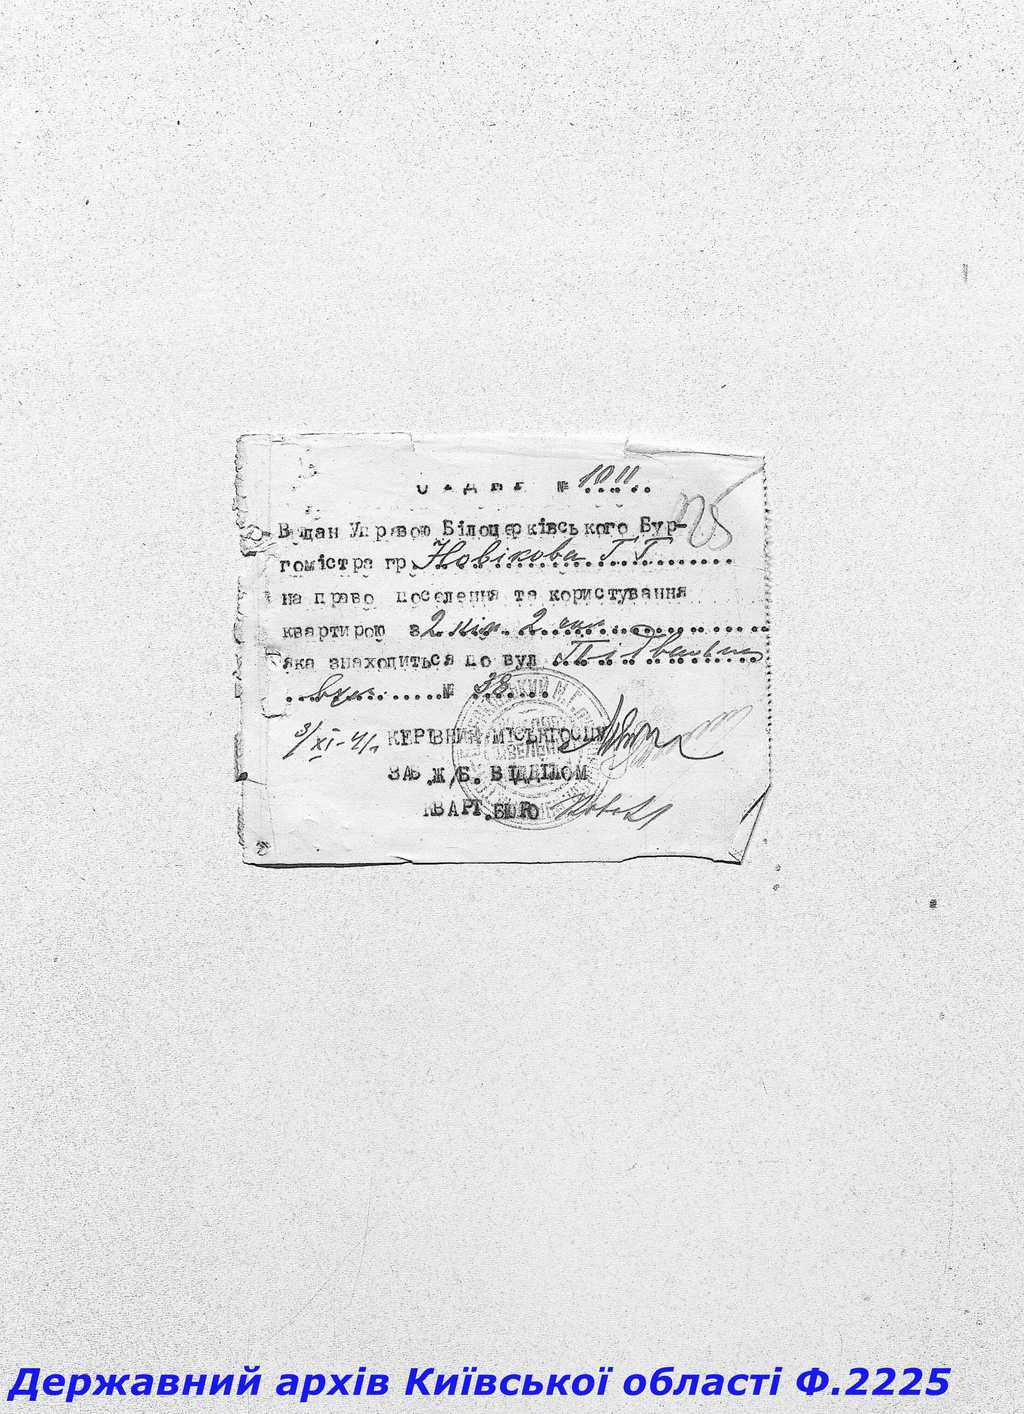 ОРДЕР № 1011
25
Видан Управою Білоцерківського Бур-
гомістра гр. Новікова Г Г
на право поселення та користування
квартирою з 2 кім. 2
яка знаходиться по вул
№ 38
3/XI-41 КЕРІВНИК МІСЬКГОСПУ
ЗАВ.Ж/Б. ВІДДІЛОМ
КВАРТ.БЮРО
Державний архів Київської області Ф.2225